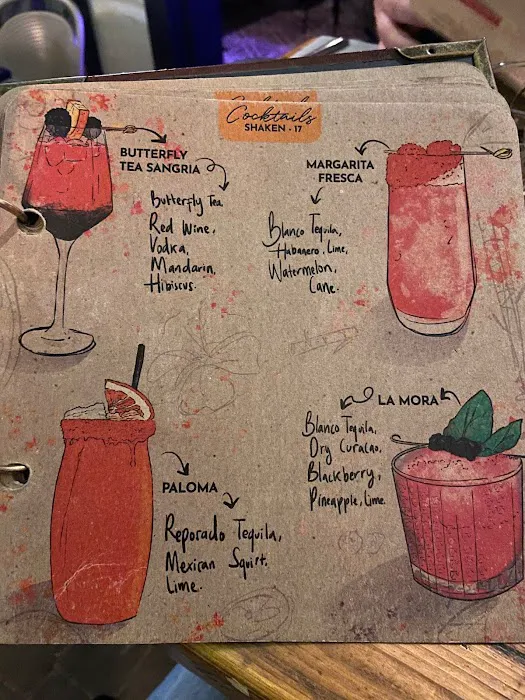 Cocktails
SHAKEN - 17
BUTTERFLY
TEA SANGRIA
Butterfly Tea
Red Wine,
Vodka,
Mandarin,
Hibiscus.
MARGARITA
FRESCA
Blanco Tequila,
Habanero, Lime,
Watermelon,
Cane.
PALOMA
Reporado Tequila,
Mexican Squirt,
Lime.
LA MORA
Blanco Tequila,
Dry Curacao,
Blackberry,
Pineapple, Lime.